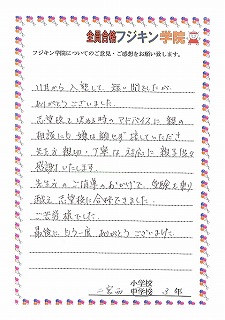 全員合格フジキン学院
フジキン学院についてのご意見・ご感想をお願い致します。
11月から入塾して、短い間でしたが、
ありがとうございました。
志望校を決める時のアドバイスに親の
相談にも嫌な顔せず接していただき
先生方の親切・丁寧な対応に親子共々
感謝いたします。
先生方のご指導のおかげで、受験を乗り
越えて志望校に合格できました。
ご苦労様でした。
最後にもう一度、ありがとうございました。
小学校
二宮西 中学校 3年